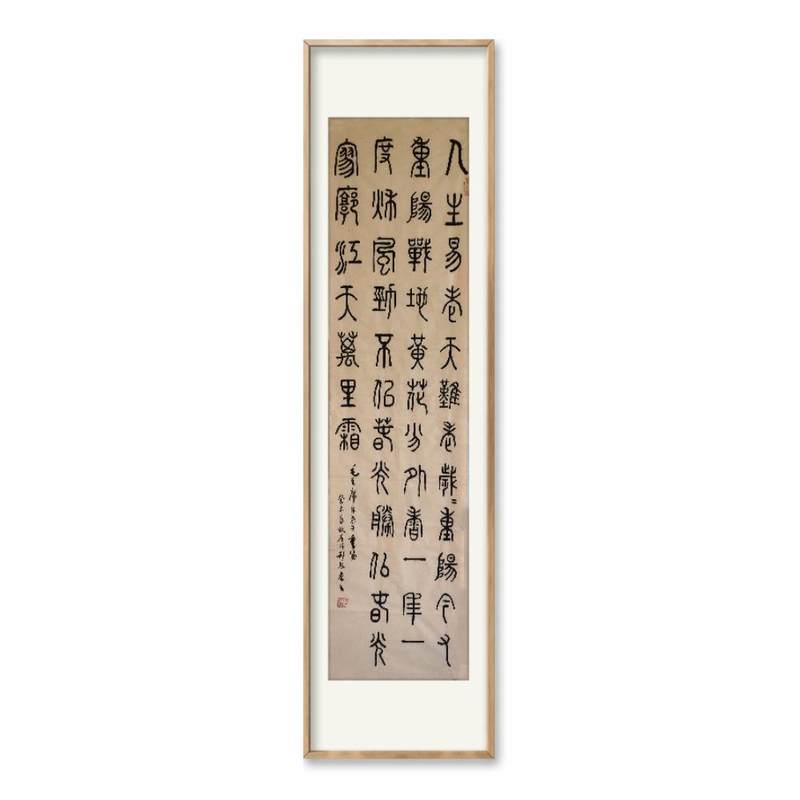 人生易老天難老歲〻重陽今又
重陽戰地黃花分外香一年一
度秋風勁不似春光勝似春光
寥廓江天萬里霜
毛主席采桑子重陽
癸未